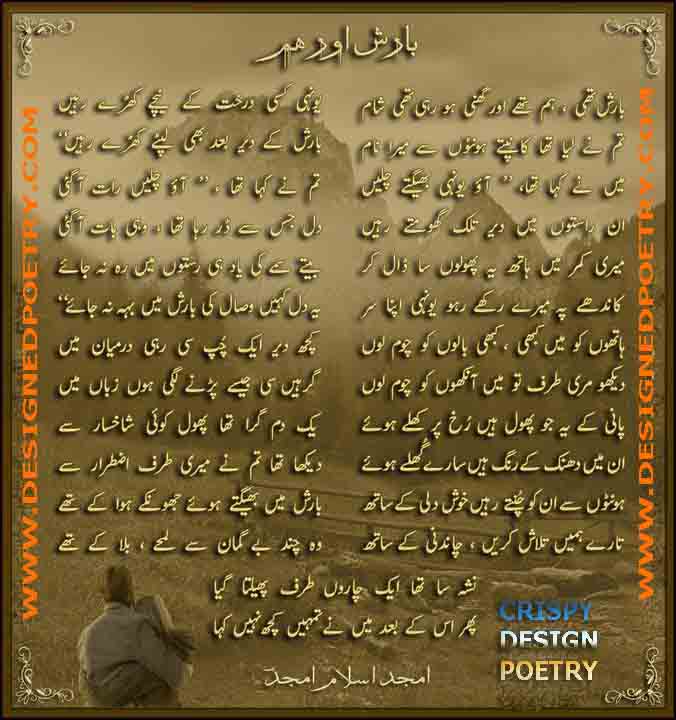 بارش اور ہم
بارش تھی ، ہم تھے اور گھنی ہو رہی تھی شام
تم نے لیا تھا کانپتے ہونٹوں سے میرا نام
میں نے کہا تھا، ”آؤ یونہی بھیگتے چلیں
ان راستوں میں دیر تلک گھومتے رہیں
میری کمر میں ہاتھ یہ پھولوں سا ڈال کر
کاندھے پہ میرے رکھے رہو یونہی اپنا سر
ہاتھوں کو میں کبھی ، کبھی بالوں کو چوم لوں
دیکھو مری طرف تو میں آنکھوں کو چوم لوں
پانی کے یہ جو پھول ہیں رُخ پر کھلے ہوئے
ان میں دھنک کے رنگ ہیں سارے گُھلے ہوئے
ہونٹوں سے ان کو چُنتے رہیں خوش دلی کے ساتھ
تارے ہمیں تلاش کریں ، چاندنی کے ساتھ
یونہی کسی درخت کے نیچے کھڑے رہیں
بارش کے دیر بعد بھی لپٹے کھڑے رہیں“
تم نے کہا تھا ، ”آؤ چلیں رات آ گئی
دل جس سے ڈر رہا تھا ، وہی بات آ گئی
بیتے سمے کی یاد ہی رستوں میں رہ نہ جائے
یہ دل کہیں وصال کی بارش میں بہہ نہ جائے“
کچھ دیر ایک چُپ سی رہی درمیان میں
گرہیں سی جیسے پڑنے لگی ہوں زباں میں
یک دم گرا تھا پھول کوئی شاخسار سے
دیکھا تھا تم نے میری طرف اضطرار سے
بارش میں بھیگتے ہوئے جھونکے ہوا کے تھے
وہ چند بے گمان سے لمحے ، بلا کے تھے
نشہ سا تھا ایک چاروں طرف پھیلتا گیا
پھر اس کے بعد میں نے تمہیں کچھ نہیں کہا
امجد اسلام امجدؔ
CRISPY
DESIGN
POETRY
WWW.DESIGNEDPOETRY.COM
WWW.DESIGNEDPOETRY.COM